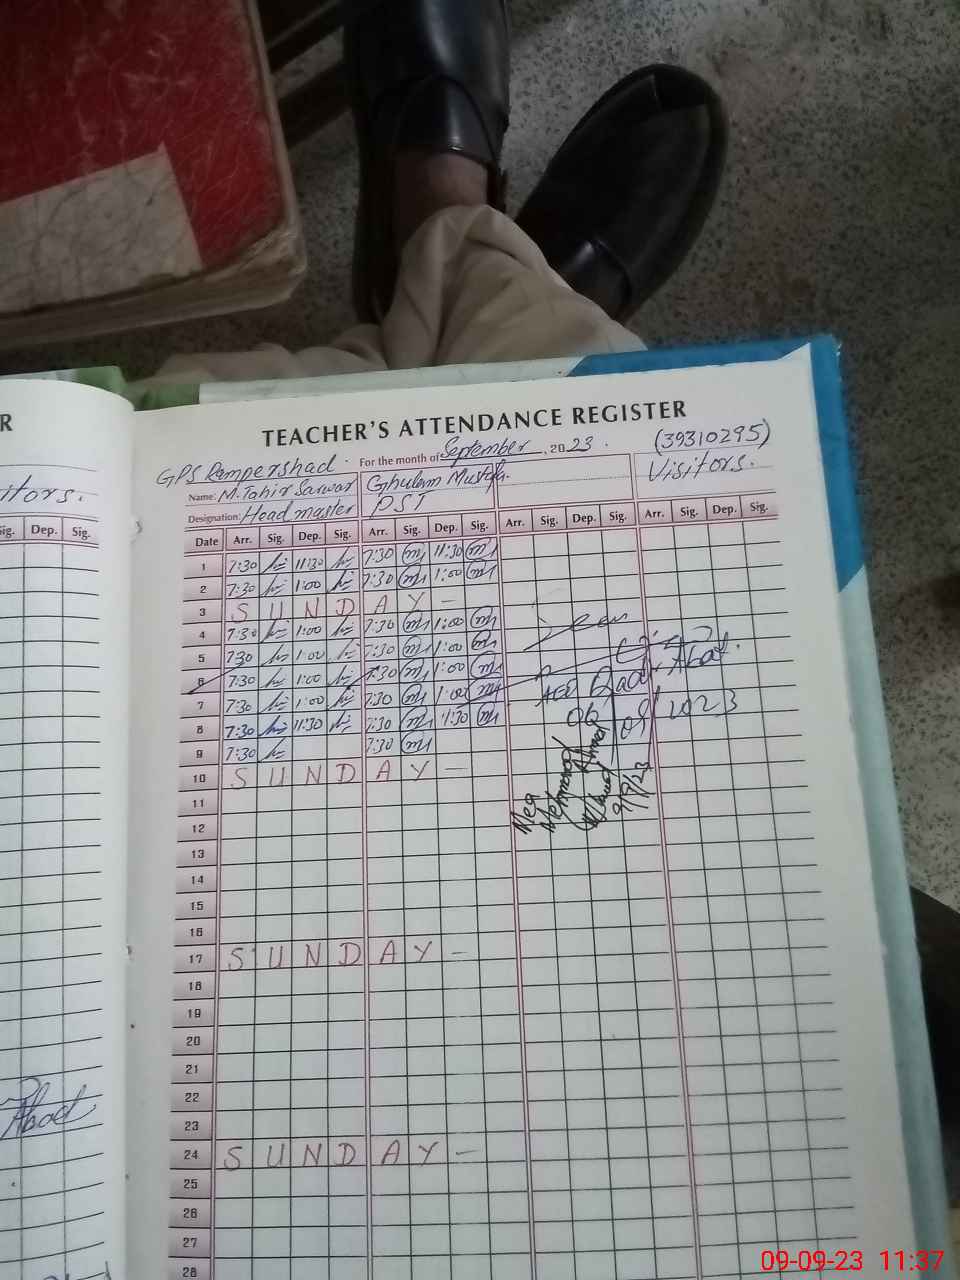 R
TEACHER'S ATTENDANCE REGISTER
GPS Rampershad. For the month of September, 2023. (39310295)
itors. Name: M. Tahir Sarwar Ghulam Mustafa Visitors.
Designation: Headmaster PST
Sig. Dep. Sig. Date Arr. Sig. Dep. Sig. Arr. Sig. Dep. Sig. Arr. Sig. Dep. Sig. Arr. Sig. Dep. Sig.
1 7:30 11:30 7:30 11:30
2 7:30 1:00 7:30 1:00
3 S U N D A Y -
4 7:30 1:00 7:30 1:00
5 7:30 1:00 7:30 1:00
6 7:30 1:00 7:30 1:00
7 7:30 1:00 7:30 1:00
8 7:30 11:30 7:30 11:30
9 7:30 7:30
10 S U N D A Y -
11
12
13
14
15
16
17 S U N D A Y -
18
19
20
21
22
23
24 S U N D A Y -
25
26
27
28
Mea
Mehmood
Ahmed
9/9/23
Abad
09-09-23 11:37